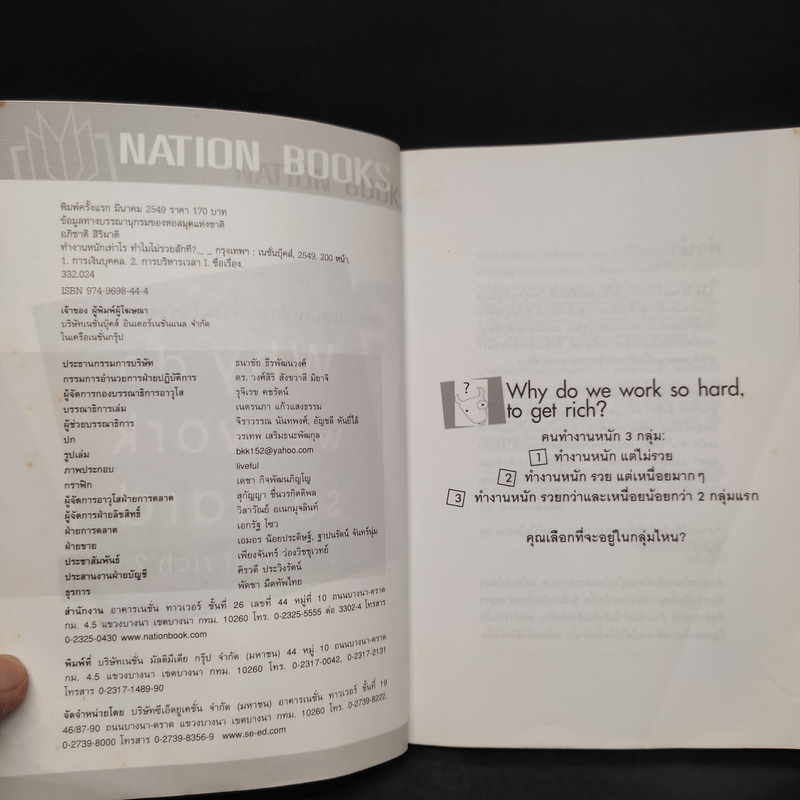 NATION BOOKS
พิมพ์ครั้งแรก มีนาคม 2549 ราคา 170 บาท
ข้อมูลทางบรรณานุกรมของหอสมุดแห่งชาติ
อภิชาติ สิริผาติ
ทำงานหนักเท่าไร ทำไมไม่รวยสักที?._ _ กรุงเทพฯ : เนชั่นบุ๊คส์, 2549. 200 หน้า.
1. การเงินบุคคล. 2. การบริหารเวลา I. ชื่อเรื่อง.
332.024
ISBN 974-9698-44-4
เจ้าของ ผู้พิมพ์ผู้โฆษณา
บริษัทเนชั่นบุ๊คส์ อินเตอร์เนชั่นแนล จำกัด
ในเครือเนชั่นกรุ๊ป
ประธานกรรมการบริษัท ธนาชัย ธีรพัฒนวงศ์
กรรมการอำนวยการฝ่ายปฏิบัติการ ดร. วงศ์สิริ สังขวาสี มิยาจิ
ผู้จัดการกองบรรณาธิการอาวุโส รุจิเรข คชรัตน์
บรรณาธิการเล่ม เนตรนภา แก้วแสงธรรม
ผู้ช่วยบรรณาธิการ จิราวรรณ นันทพงศ์, อัญชลี หันยีไล้
ปก วรเทพ เสริมธนะพัฒกุล
รูปเล่ม bkk152@yahoo.com
ภาพประกอบ liveful
กราฟิก เดชา กิจพัฒนภิญโญ
ผู้จัดการอาวุโสฝ่ายการตลาด สุกัญญา ชื่นวรกิตติพล
ผู้จัดการฝ่ายลิขสิทธิ์ วิลาวัณย์ อเนกมุจลินท์
ฝ่ายการตลาด เอกรัฐ โชว
ฝ่ายขาย เอมอร น้อยประดิษฐ์, ฐาปนรัตน์ จันทร์นุ่ม
ประชาสัมพันธ์ เพียงจันทร์ ว่องวิชชุเวทย์
ประสานงานฝ่ายบัญชี ศิรวดี ประวิงรัตน์
ธุรการ พัดชา มีดทัพไทย
สำนักงาน อาคารเนชั่น ทาวเวอร์ ชั้นที่ 26 เลขที่ 44 หมู่ที่ 10 ถนนบางนา-ตราด
กม. 4.5 แขวงบางนา เขตบางนา กทม. 10260 โทร. 0-2325-5555 ต่อ 3302-4 โทรสาร
0-2325-0430 www.nationbook.com
พิมพ์ที่ บริษัทเนชั่น มัลติมีเดีย กรุ๊ป จำกัด (มหาชน) 44 หมู่ 10 ถนนบางนา-ตราด
กม. 4.5 แขวงบางนา เขตบางนา กทม. 10260 โทร. 0-2317-0042, 0-2317-2131
โทรสาร 0-2317-1489-90
จัดจำหน่ายโดย บริษัทซีเอ็ดยูเคชั่น จำกัด (มหาชน) อาคารเนชั่น ทาวเวอร์ ชั้นที่ 19
46/87-90 ถนนบางนา-ตราด แขวงบางนา เขตบางนา กทม. 10260 โทร. 0-2739-8222,
0-2739-8000 โทรสาร 0-2739-8356-9 www.se-ed.com
Why do we work so hard,
to get rich?
คนทำงานหนัก 3 กลุ่ม:
1 ทำงานหนัก แต่ไม่รวย
2 ทำงานหนัก รวย แต่เหนื่อยมากๆ
3 ทำงานหนัก รวยกว่าและเหนื่อยน้อยกว่า 2 กลุ่มแรก
คุณเลือกที่จะอยู่ในกลุ่มไหน?